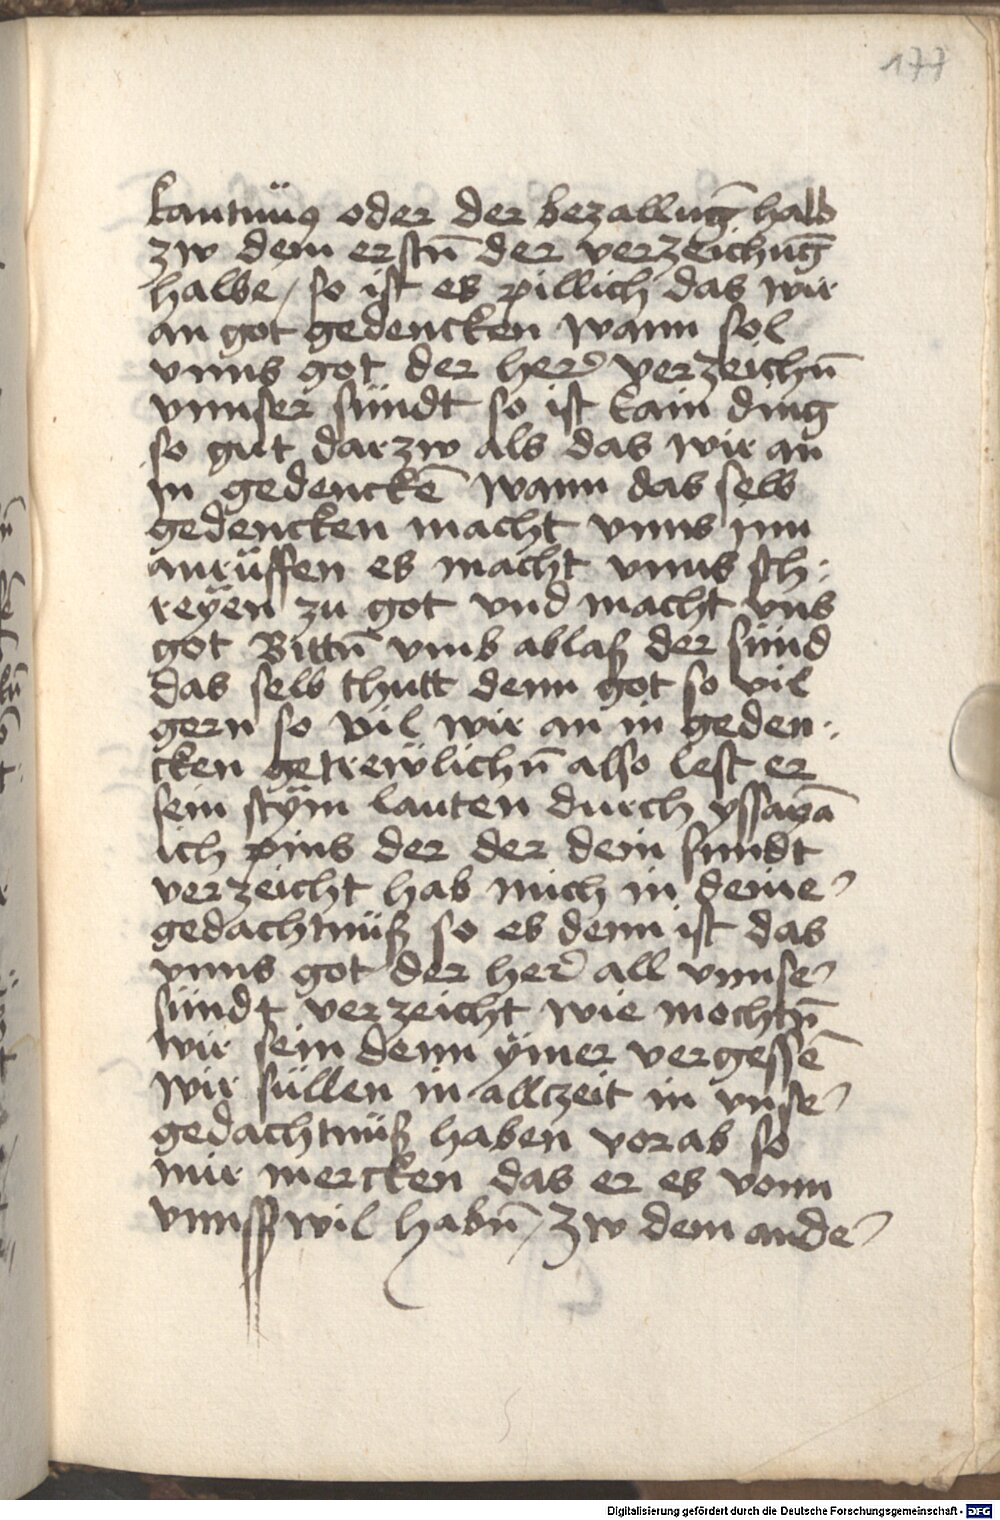 177
kantnüs oder der bezallūg halb
zw dem erstn̄ der verzeichn̄g
halbe / so ist es pillich das wir
an got gedencken wann sol
vnns got der her̄ verzeichn̄
vnnser sündt so ist kain ding
so gut darzw als das wir an
in gedenckē wann das selb
gedencken macht vnns inn
anrüffen es macht vnns sch:
reÿen zu got vnd macht vns
got Bittn̄ vmb ablaß der sünd
das selb thutt denn got so vil
gern so vil wir an in geden:
cken getrewlichn̄ also lest er
sein stÿm lauten durch yssayā
ich pins der der dein sundt
verzeicht hab mich in deine᷑
gedachtnüß so es denn ist das
vnns got der her̄ all vnnse᷑
sündt verzeicht wie mochtn̄
wir sein denn ÿmer vergessē
wir süllen in allzeit in vnse᷑
gedachtnüß haben vorab so
mir mercken das er es vonn
vnnß wil habn̄ / zw dem ande᷑
Digitalisierung gefördert durch die Deutsche Forschungsgemeinschaft - DFG